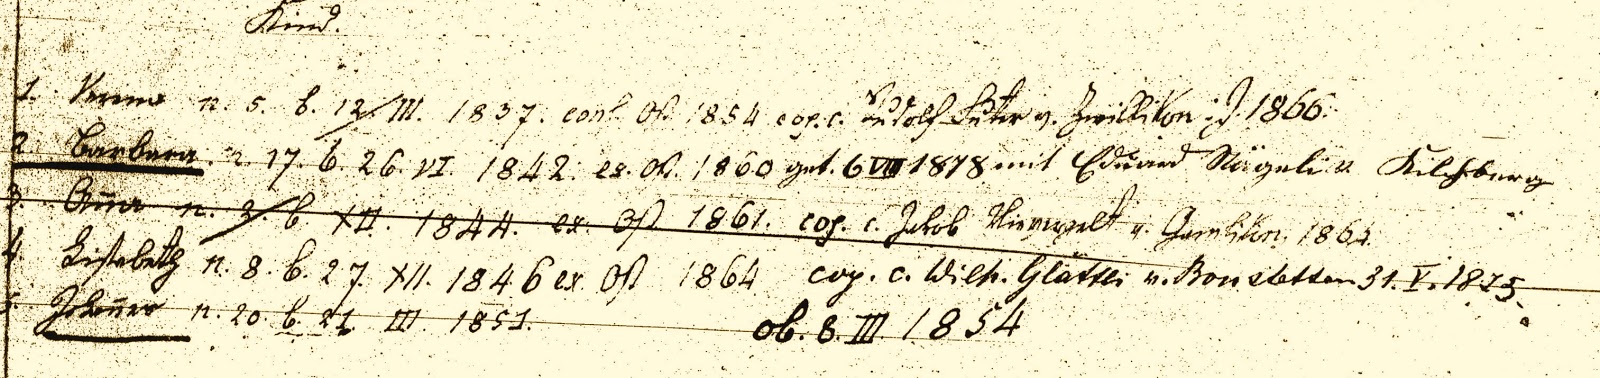 Kind.
1. Verena n. 5. b. 12/III. 1837. conf. Ost. 1854 cop. c. Rudolf Suter v. Zwillikon i. J. 1866.
2. Barbara. n. 17. b. 26. VI. 1842. ex. Ost. 1860 get. 6 VIII 1878 mit Eduard Nägeli v. Kilchberg
3. Anna n. 2/ b XII. 1844. ex. Ost 1861. cop. c. Jakob v. Gamlikon.
4 Lisebeth n. 8. b. 27. XII. 1846 ex. Ost 1864 cop. c. Wilh. Glättli v. Bonstetten 31. V. 1875.
5. Johannes n. 20. b. 21 III. 1851. ob. 8. III 1854